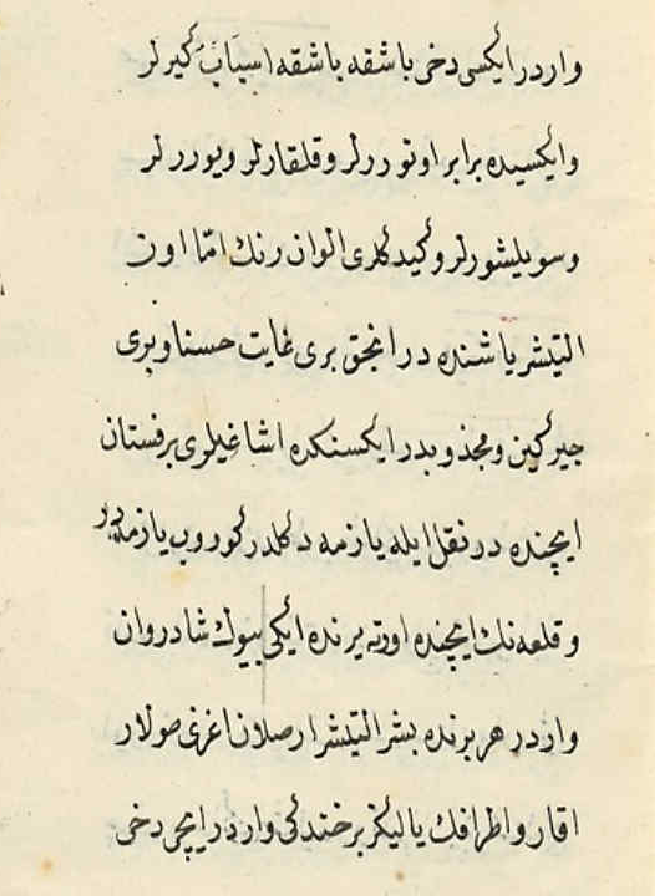 واردر ايكسى دخى باشقه باشقه اسباب كيرلر
وايكسيده برابر اوتوررلر وقلقارلر ويوررلر
وسويليشورلر وكيدكلرى الوان رنك امّا اون
التيشر ياشنده در انجق برى غايت حسنا وبرى
جيركين ومجذوبدر ايكسنكده اشاغيلرى برفستان
ايچنده در نقل ايله يازمه دكلدر كوروب يازمه در
وقلعه نك ايچنده اورته يرنده ايكى بيوك شادروان
واردر هر برنده بشر التيشر ارصلان اغزى صولار
اقار واطرافك ياليكز برخندكى واردر ايچى دخى